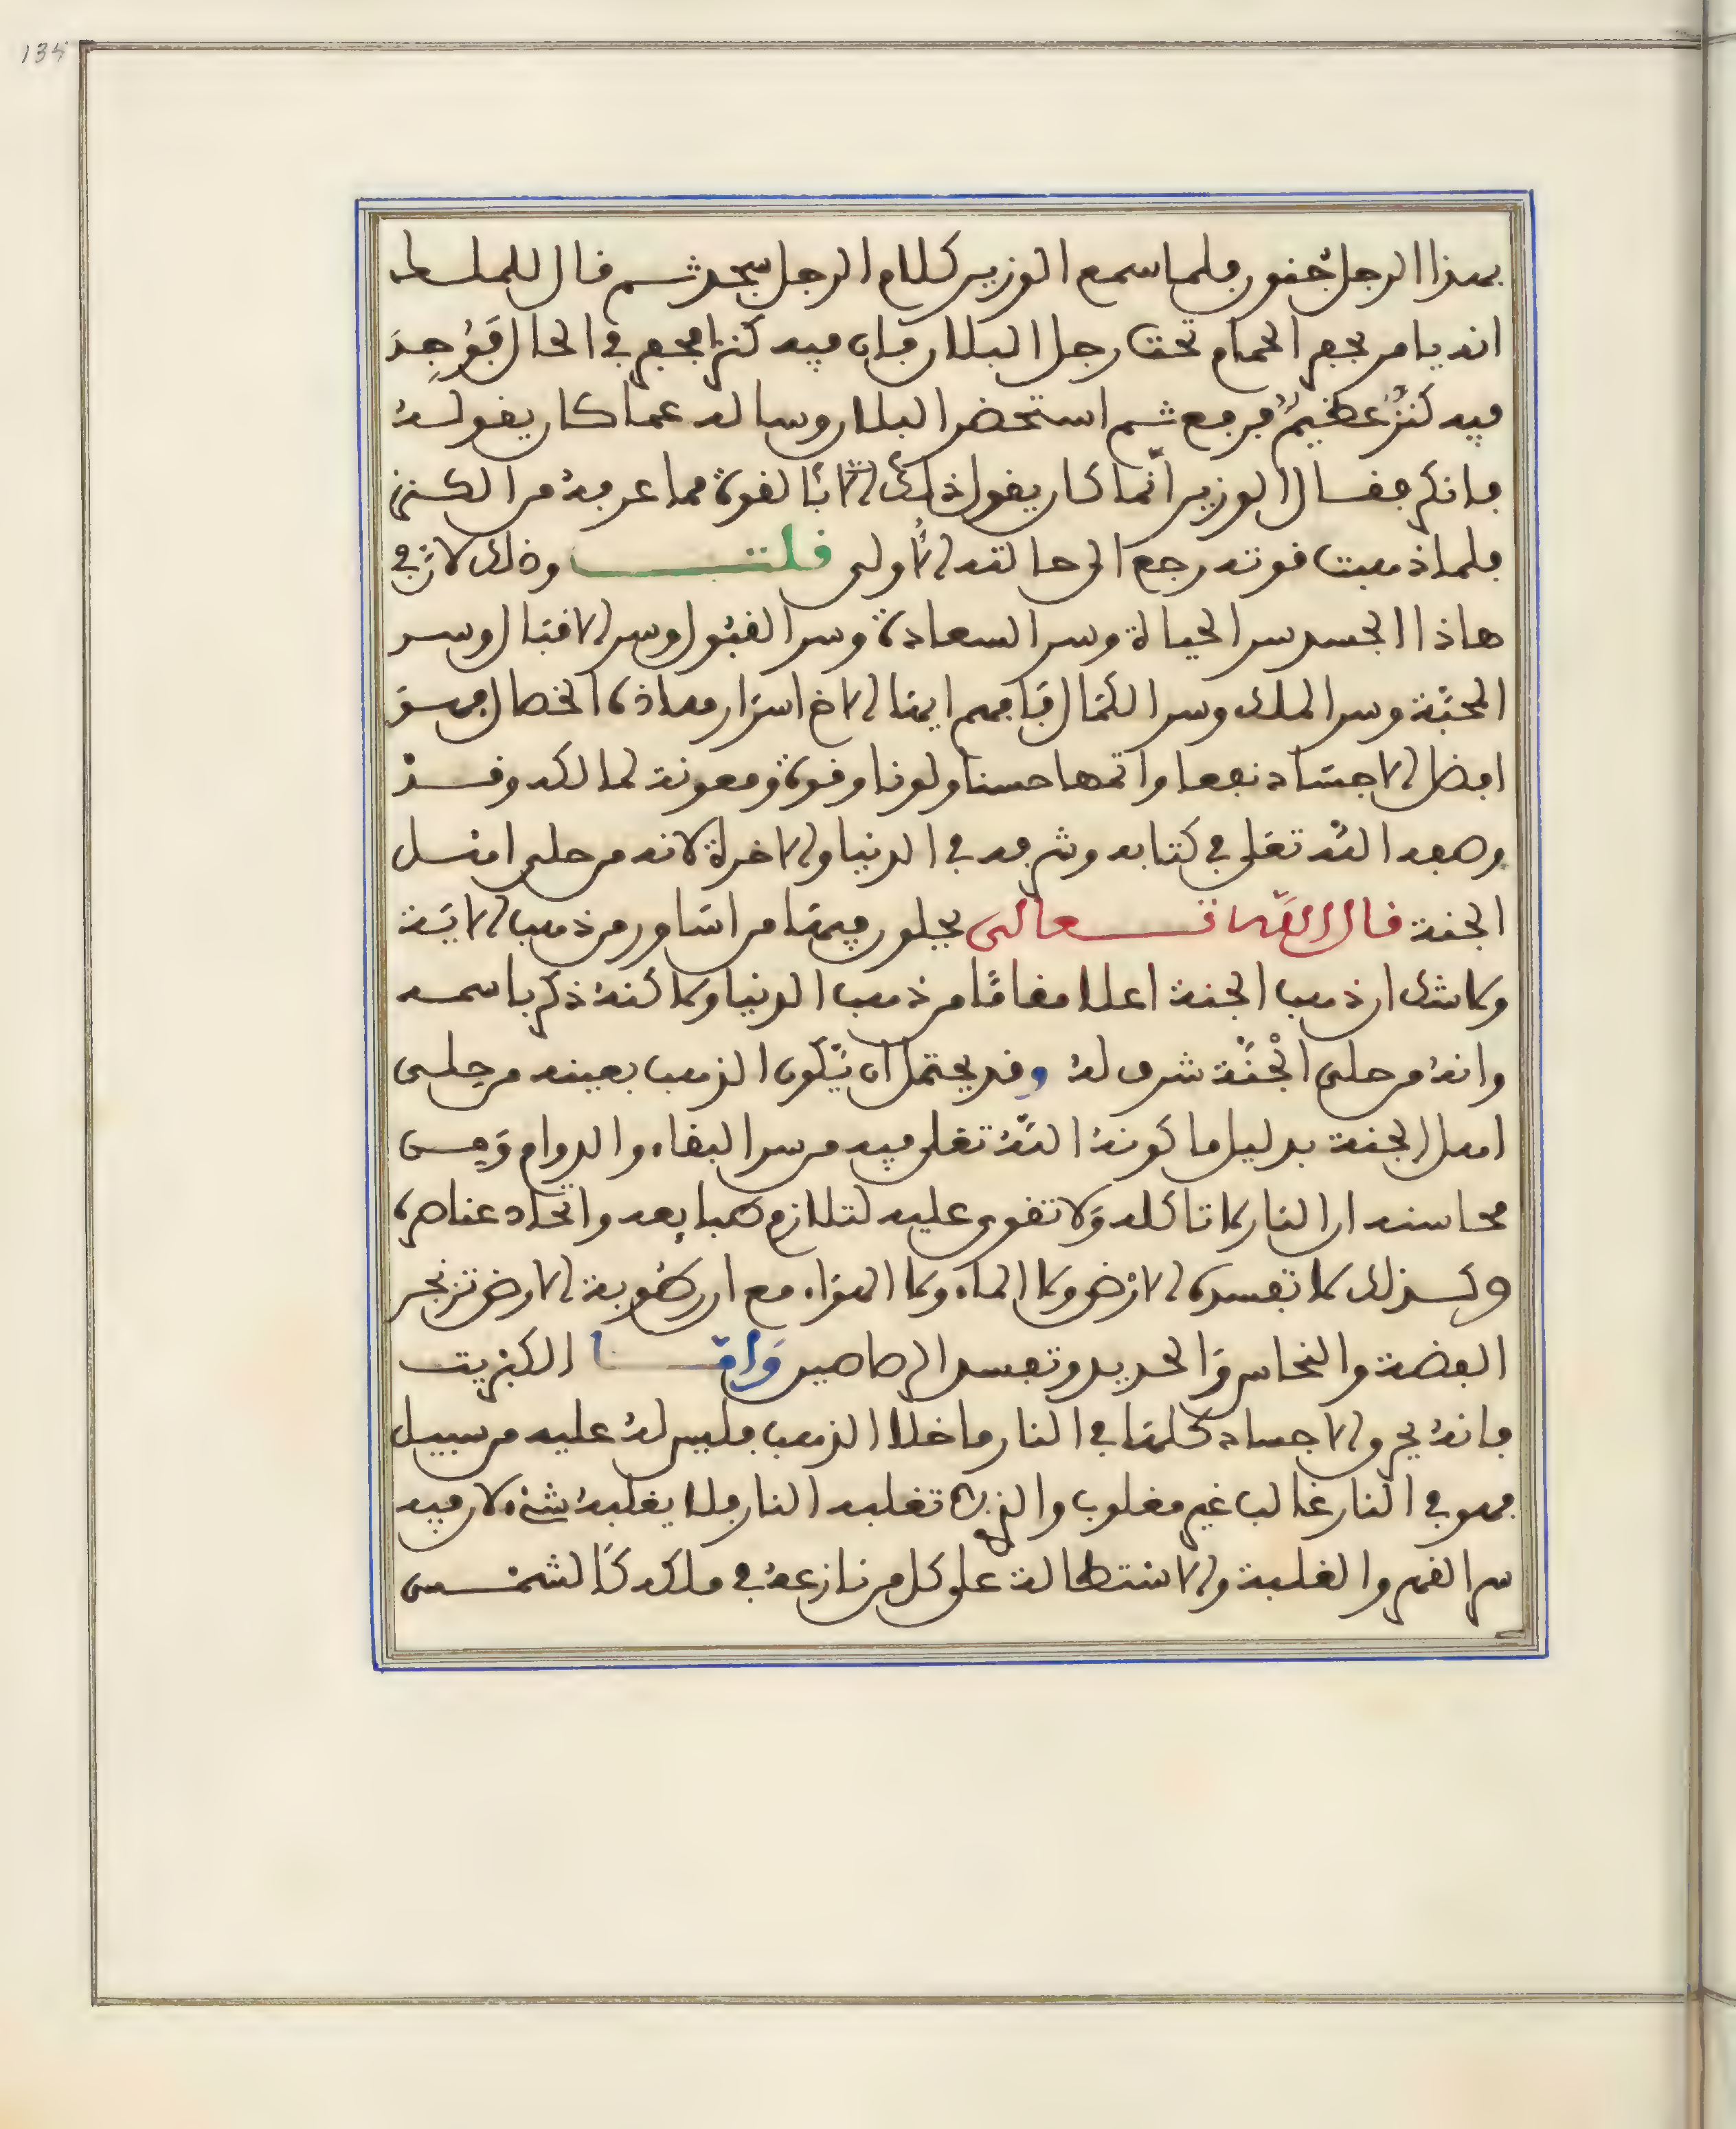 135
بهذا الرجل جنون فلما سمع الوزير كلام الرجل سجد ثم قال للملك
انه يامر بحفر الحمام تحت رجل البلان فان فيه كنزا فحفر في الحال فَوُجِدَ
فيه كنزٌ عظيمٌ فرفع ثم استحضر البلان وساله عما كان يقولهُ
فانكر فقال الوزير انّما كان يقول ذلك الاّ بالقوة مما عرفهُ من الكنز
فلما ذهبت قوته رجع الى حالته الأولى قلت وذلك لانّ في
هاذا الجسد سر الحياة وسر السعادة وسر القبول وسر الاقبال وسر
المحبّة وسر الملك وسر الكمال فافهم ايها الاخ اسرار هاذه الخصال فهو
افضل الاجساد نفعا واتمها حسنا ولونا وقوة ومعونة لمالكه وقد
وصفه اللّه تعلى في كتابه وشرفه في الدنيا والاخرة لانه من حلى اهل
الجنة قال اللّه تعالى يحلون فيها من اساور من ذهب الاية
ولا شك ان ذهب الجنة اعلا مقامًا من ذهب الدنيا ولاكنهُ ذكر باسمه
وانهُ من حلى الْجنّة شرف لهُ وقد يحتمل ان يّكون الذهب بعينه من حلى
اهل الجنة بدليل ما كونهُ اللّهُ تعلى فيه من سر البقاء والدوام وَمن
محاسنه ان النار لا تاكله وَلا تقوى عليه لتلازم طبايعه واتحاد عناصره
وكذلك لا تفسده الارْض ولا الماء ولا الهواء مع ان رطوبة الارض تزنجر
الفضة والنحاس وَالحديد وتفسد الرصاصين وَامّا الكبريت
فانهُ يحرق الاجساد كلها في النار ما خلا الذهب فليس لهُ عليه من سبيل
فهو في النار غالب غير مغلوب والذى تغلبه النار فلا يغلبهُ شئ لان فيه
سر القهر والغلبة والاستطالة على كل من نازعهُ في ملكه كالشمس